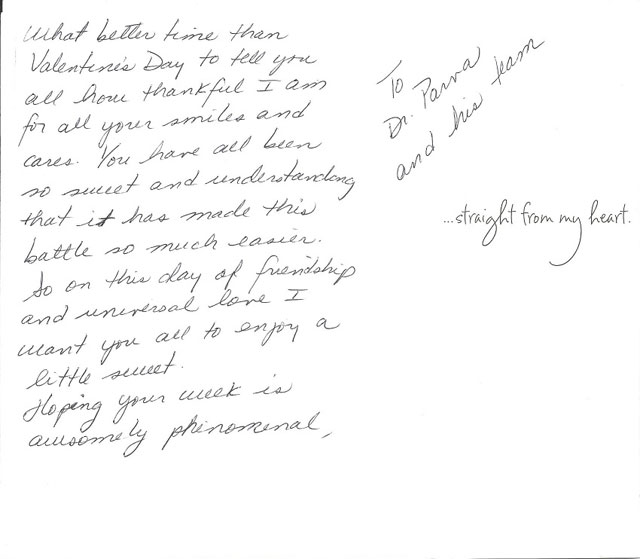 What better time than
Valentine's Day to tell you
all how thankful I am
for all your smiles and
cares. You have all been
so sweet and understanding
that it has made this
battle so much easier.
So on this day of friendship
and universal love I
want you all to enjoy a
little sweet.
Hoping your week is
awsomely phinomenal,
To
Dr. Parva
and his team
...straight from my heart.